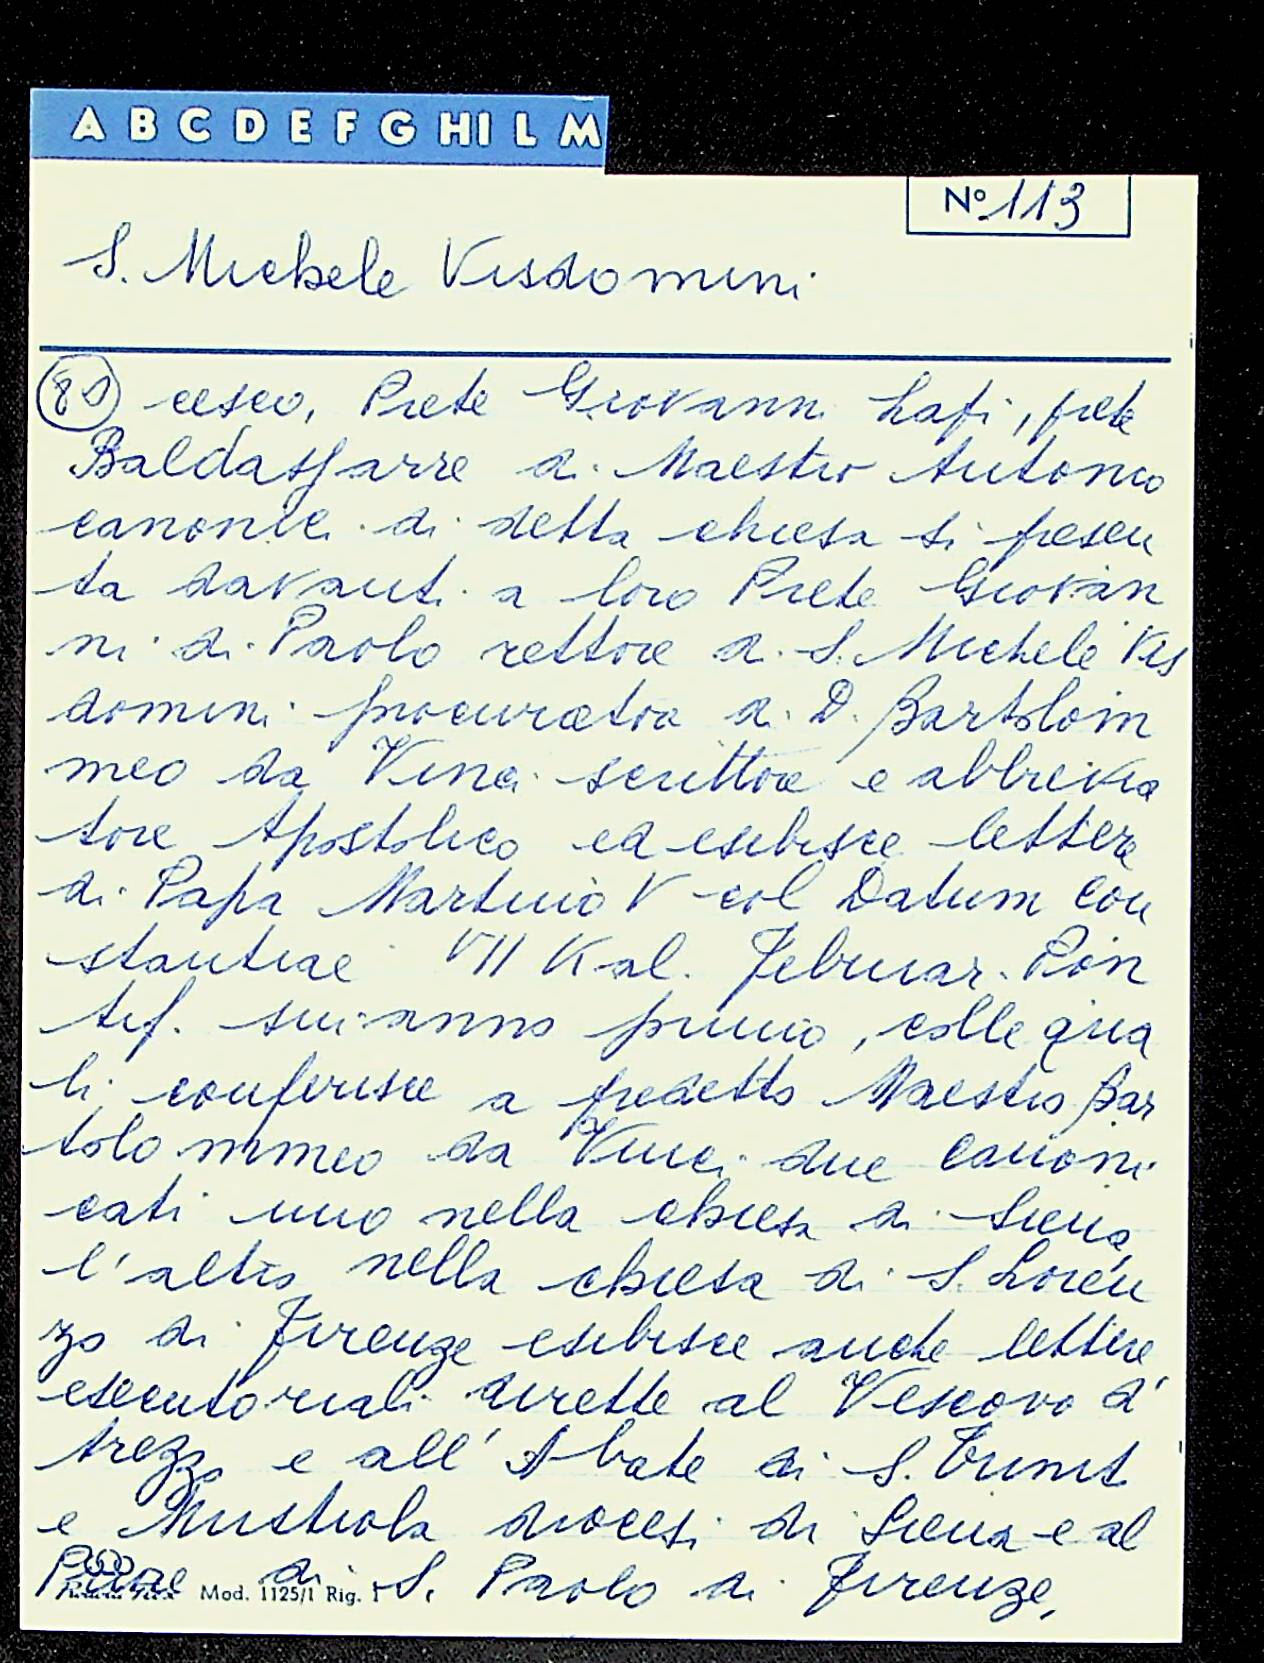 A B C D E F G HI L M
Nº 113
S. Michele Visdomini
cesco, Prete Giovanni Lapi, prete
Baldassarre di Maestro Antonio
canonici di detta chiesa si presen
ta davanti a loro Prete Giovan
ni di Paolo rettore di S. Michele Vis
domini procuratore di D. Bartolom
meo da Vinci scrittore e abbrevia
tore Apostolico ed esibisce lettere
di Papa Martino V col Datum Con
stantiae VII Kal. Februar. Pon
tif. sui anno primo, colle qua
li conferisce a predetto Maestro Bar
tolommeo da Vinci due canoni
cati uno nella chiesa di Siena
l'altro nella chiesa di S. Loren
zo di Firenze esibisce anche lettere
esecutoriali dirette al Vescovo d'
Arezzo e all' Abate di S.
e Mustiola diocesi di Siena e al
Priore di S. Paolo di Firenze,
Mod. 1125/1 Rig. 1